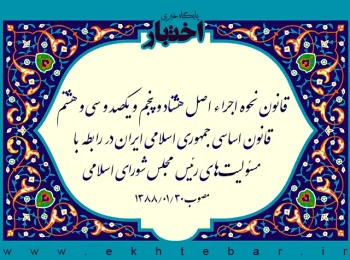 پایگاه خبری
اختبار
قانون نحوه اجراء اصل هشتاد و پنجم و یکصد و سی و هشتم
قانون اساسی جمهوری اسلامی ایران در رابطه با
مسئولیت‌های رئیس مجلس شورای اسلامی
مصوب ۱۳۸۸/۰۱/۳۰
www.ekhtebar.ir